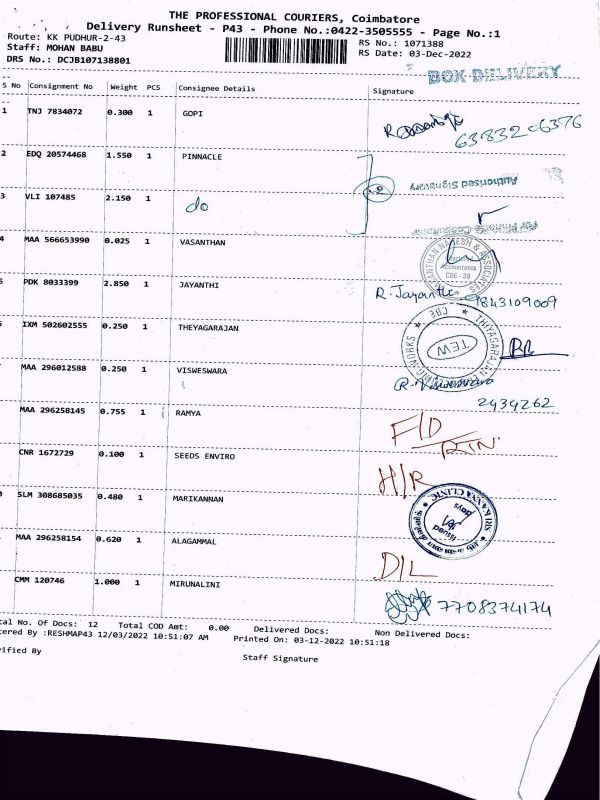 THE PROFESSIONAL COURIERS, Coimbatore
Delivery Runsheet - P43 - Phone No.:0422-3505555 - Page No.:1
Route: KK PUDHUR-2-43
RS No.: 1071388
Staff: MOHAN BABU
RS Date: 03-Dec-2022
DRS No.: DCJB107138801
BOX DELIVERY
S No Consignment No Weight PCS Consignee Details Signature
1 TNJ 7834072 0.300 1 GOPI
6383206376
2 EDQ 20574468 1.550 1 PINNACLE
Authorised Signatory
3 VLI 107485 2.150 1 do
4 MAA 566653990 0.025 1 VASANTHAN
CBE - 38
PDK 8033399 2.850 1 JAYANTHI R. Jayanthi 9843109009
IXM 502602555 0.250 1 THEYAGARAJAN
TEW
MAA 296012588 0.250 1 VISWESWARA
2434262
MAA 296258145 0.755 1 RAMYA F/D RTN.
CNR 1672729 0.100 1 SEEDS ENVIRO H/R
SLM 308685035 0.480 1 MARIKANNAN
SRI KANNA CLINIC
MAA 296258154 0.620 1 ALAGAMMAL D/L
CMM 120746 1.000 1 MIRUNALINI 7708374174
tal No. Of Docs: 12 Total COD Amt: 0.00 Delivered Docs: Non Delivered Docs:
tered By :RESHMAP43 12/03/2022 10:51:07 AM Printed On: 03-12-2022 10:51:18
rified By
Staff Signature